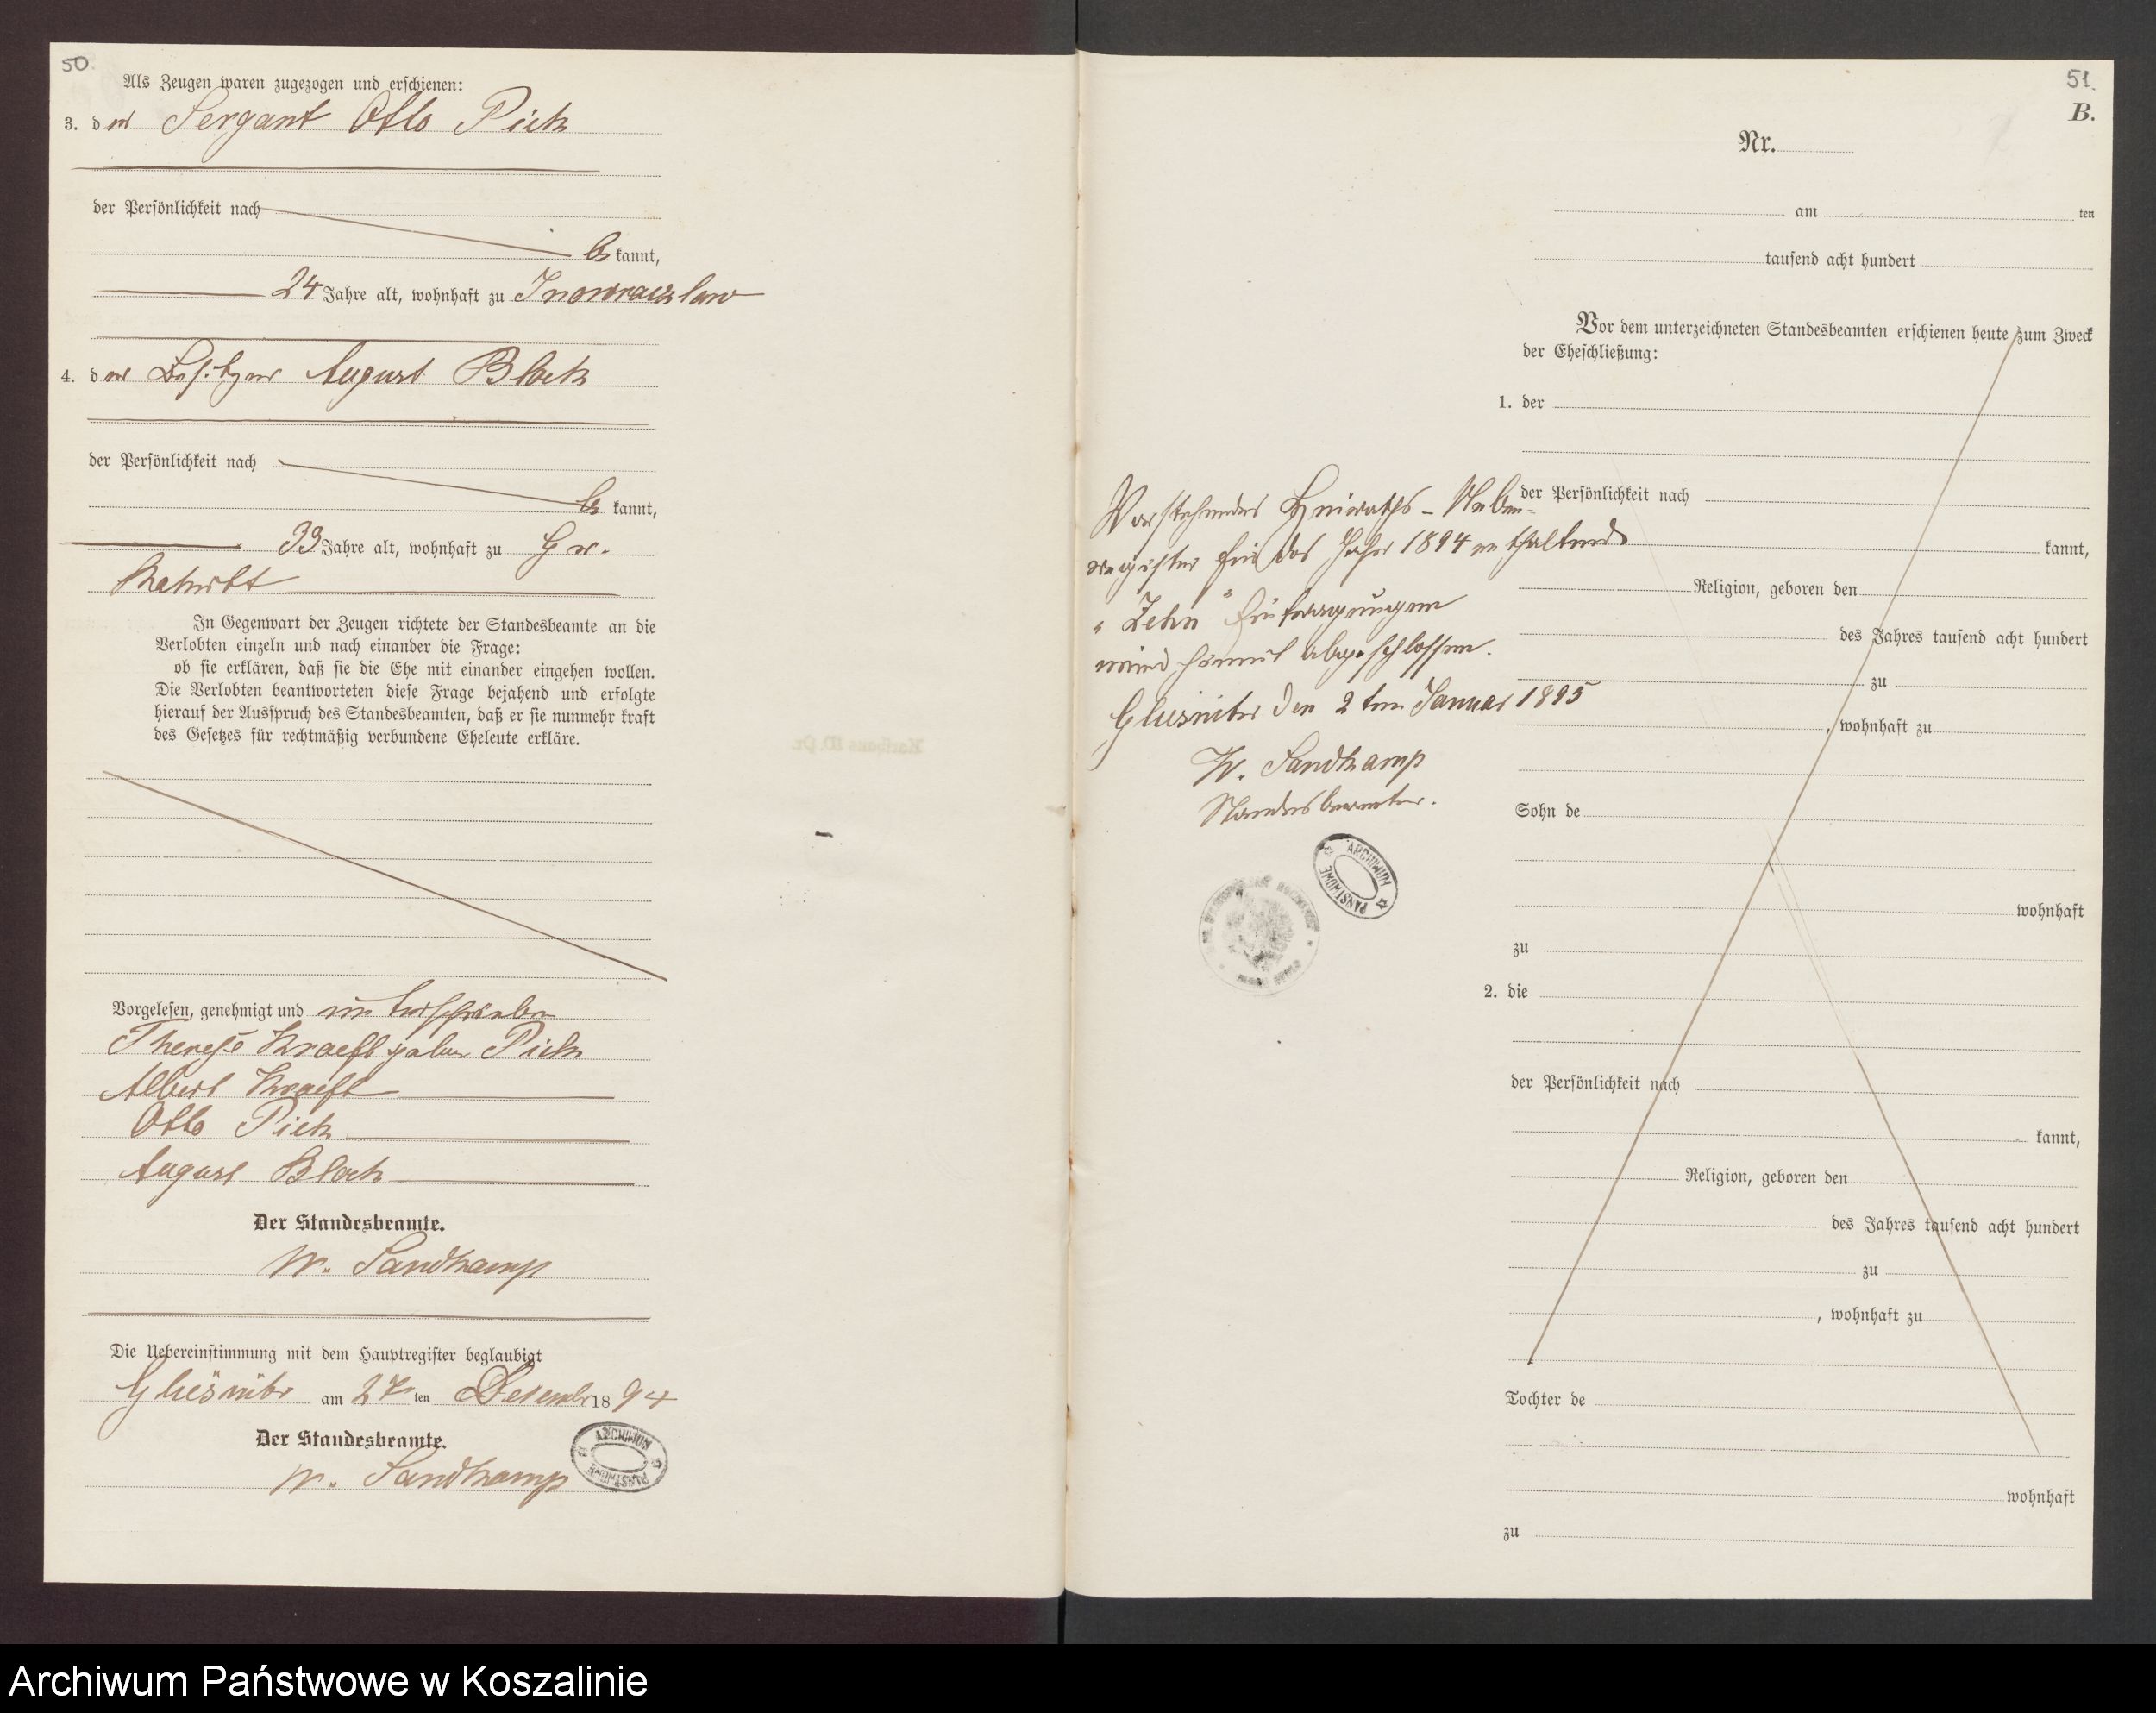 50.
Als Zeugen waren zugezogen und erschienen:
3. der Sergant Otto Pick
der Persönlichkeit nach
be kannt,
24 Jahre alt, wohnhaft zu Inowrazlaw
4. der Besitzer August Block
der Persönlichkeit nach
be kannt,
33 Jahre alt, wohnhaft zu Gr.
Rakitt
In Gegenwart der Zeugen richtete der Standesbeamte an die
Verlobten einzeln und nach einander die Frage:
ob sie erklären, daß sie die Ehe mit einander eingehen wollen.
Die Verlobten beantworteten diese Frage bejahend und erfolgte
hierauf der Ausspruch des Standesbeamten, daß er sie nunmehr kraft
des Gesetzes für rechtmäßig verbundene Eheleute erkläre.
Vorgelesen, genehmigt und unterschrieben
Therese Kraeft geboren Pick
Albert Kraeft
Otto Pick
August Block
Der Standesbeamte.
W. Sandkamp
Die Uebereinstimmung mit dem Hauptregister beglaubigt
Gliesnitz am 27 ten Dezembr 18 94
Der Standesbeamte.
W. Sandkamp
ARCHIWUM PAŃSTWOWE
51.
B.
Nr.
am ten
tausend acht hundert
Vor dem unterzeichneten Standesbeamten erschienen heute zum Zweck
der Eheschließung:
1. der
der Persönlichkeit nach
kannt,
Religion, geboren den
des Jahres tausend acht hundert
zu
, wohnhaft zu
Sohn de
wohnhaft
zu
2. die
der Persönlichkeit nach
kannt,
Religion, geboren den
des Jahres tausend acht hundert
zu
, wohnhaft zu
Tochter de
wohnhaft
zu
Vorstehendes Heiraths-Neben-
register für das Jahr 1894 enthaltend
"Zehn" Eintragungen
wird hiermit abgeschlossen.
Gliesnitz den 2ten Januar 1895
W. Sandkamp
Standesbeamter.
ARCHIWUM PAŃSTWOWE
Archiwum Państwowe w Koszalinie